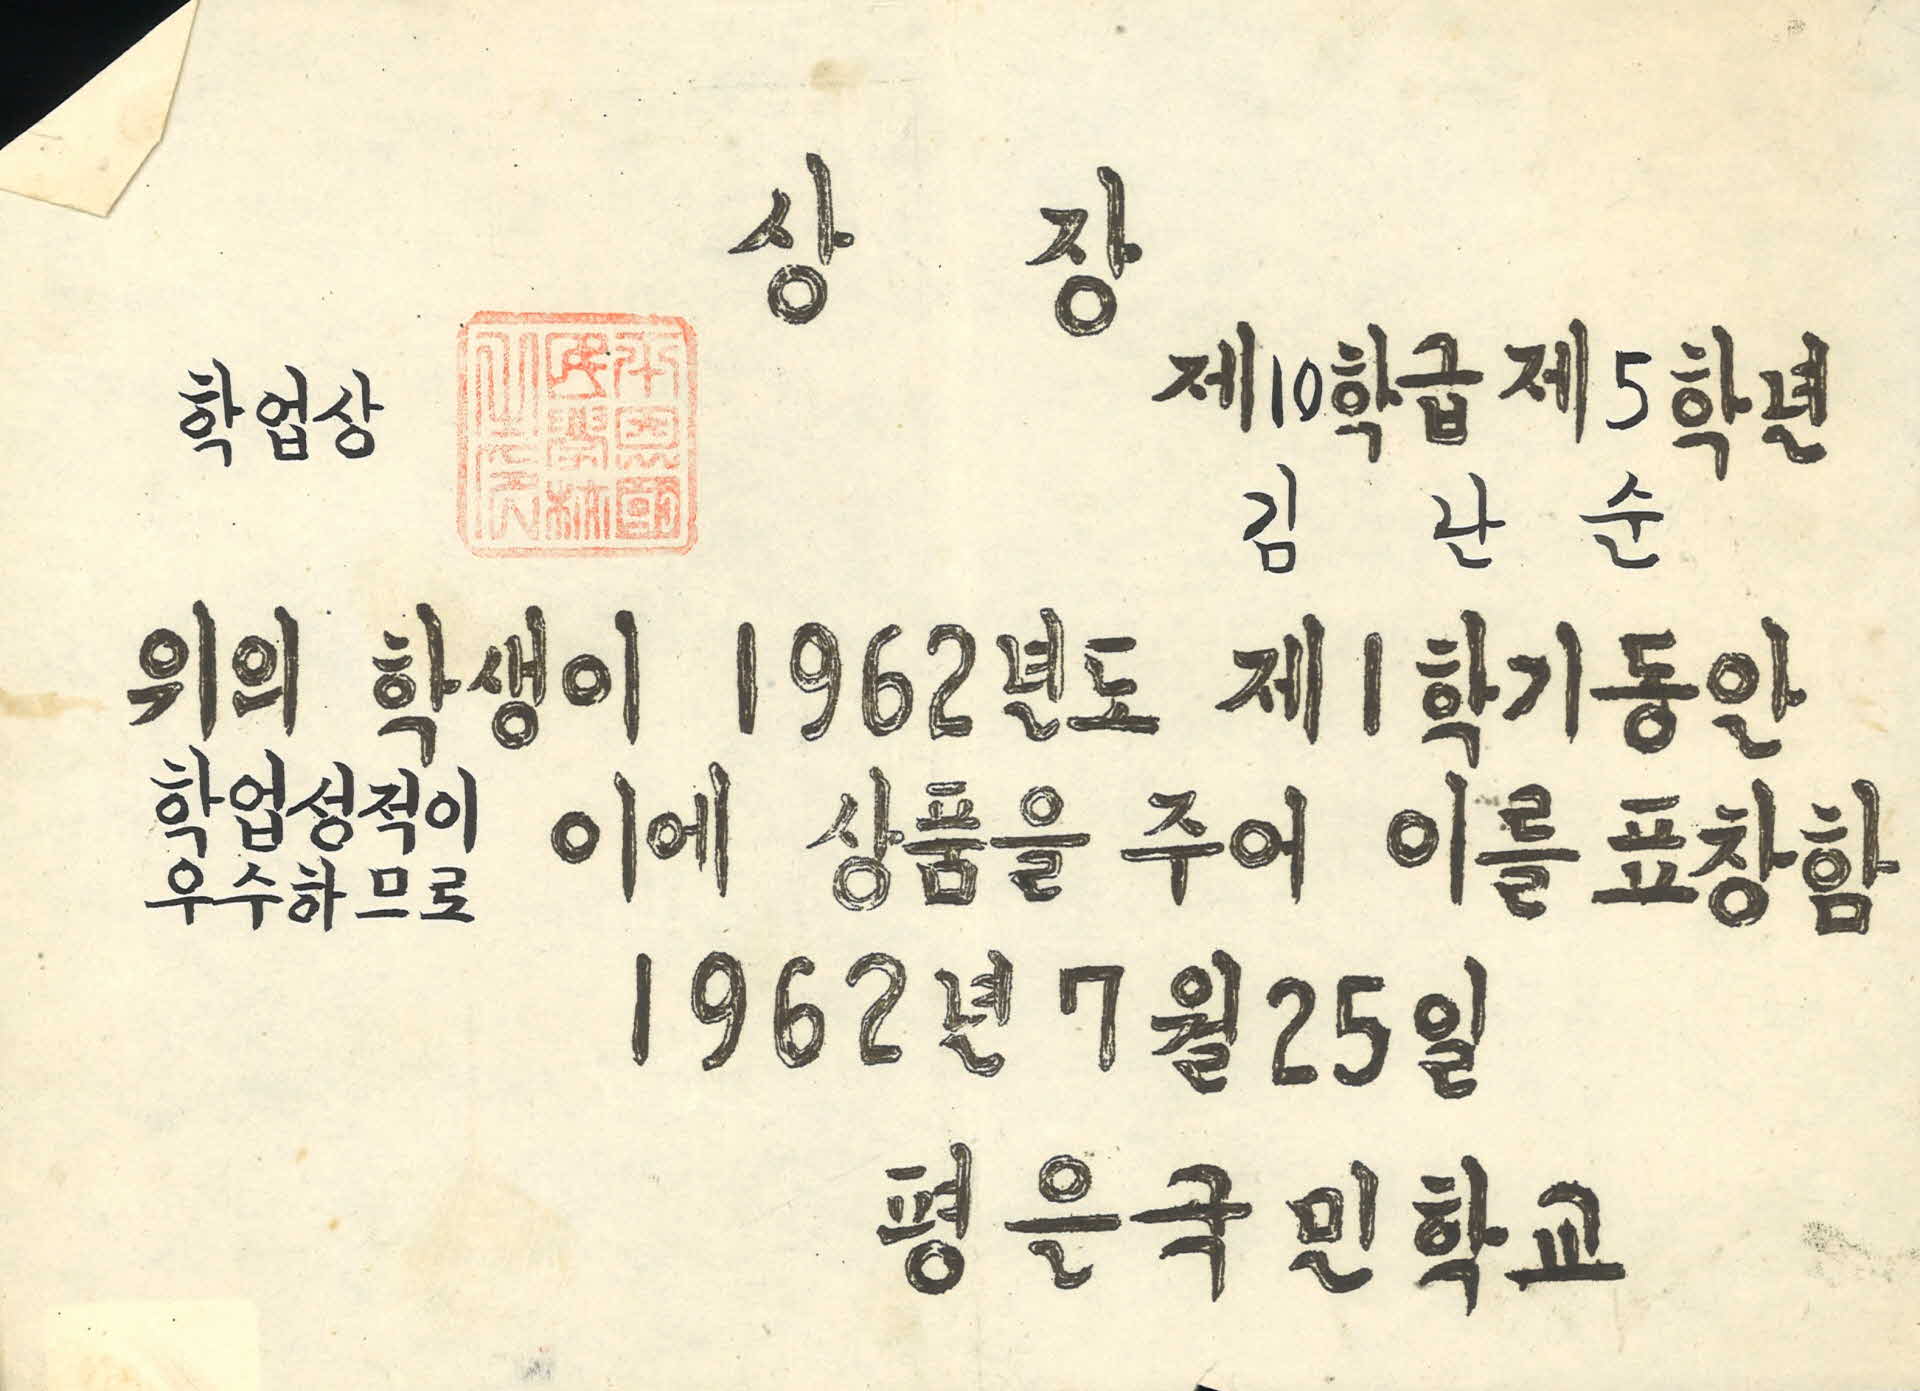 상 장
제10학급 제5학년
학업상
김 난 순
위의 학생이 1962년도 제1학기동안
학업성적이
우수하므로 이에 상품을 주어 이를 표창함
1962년 7월 25일
평은국민학교